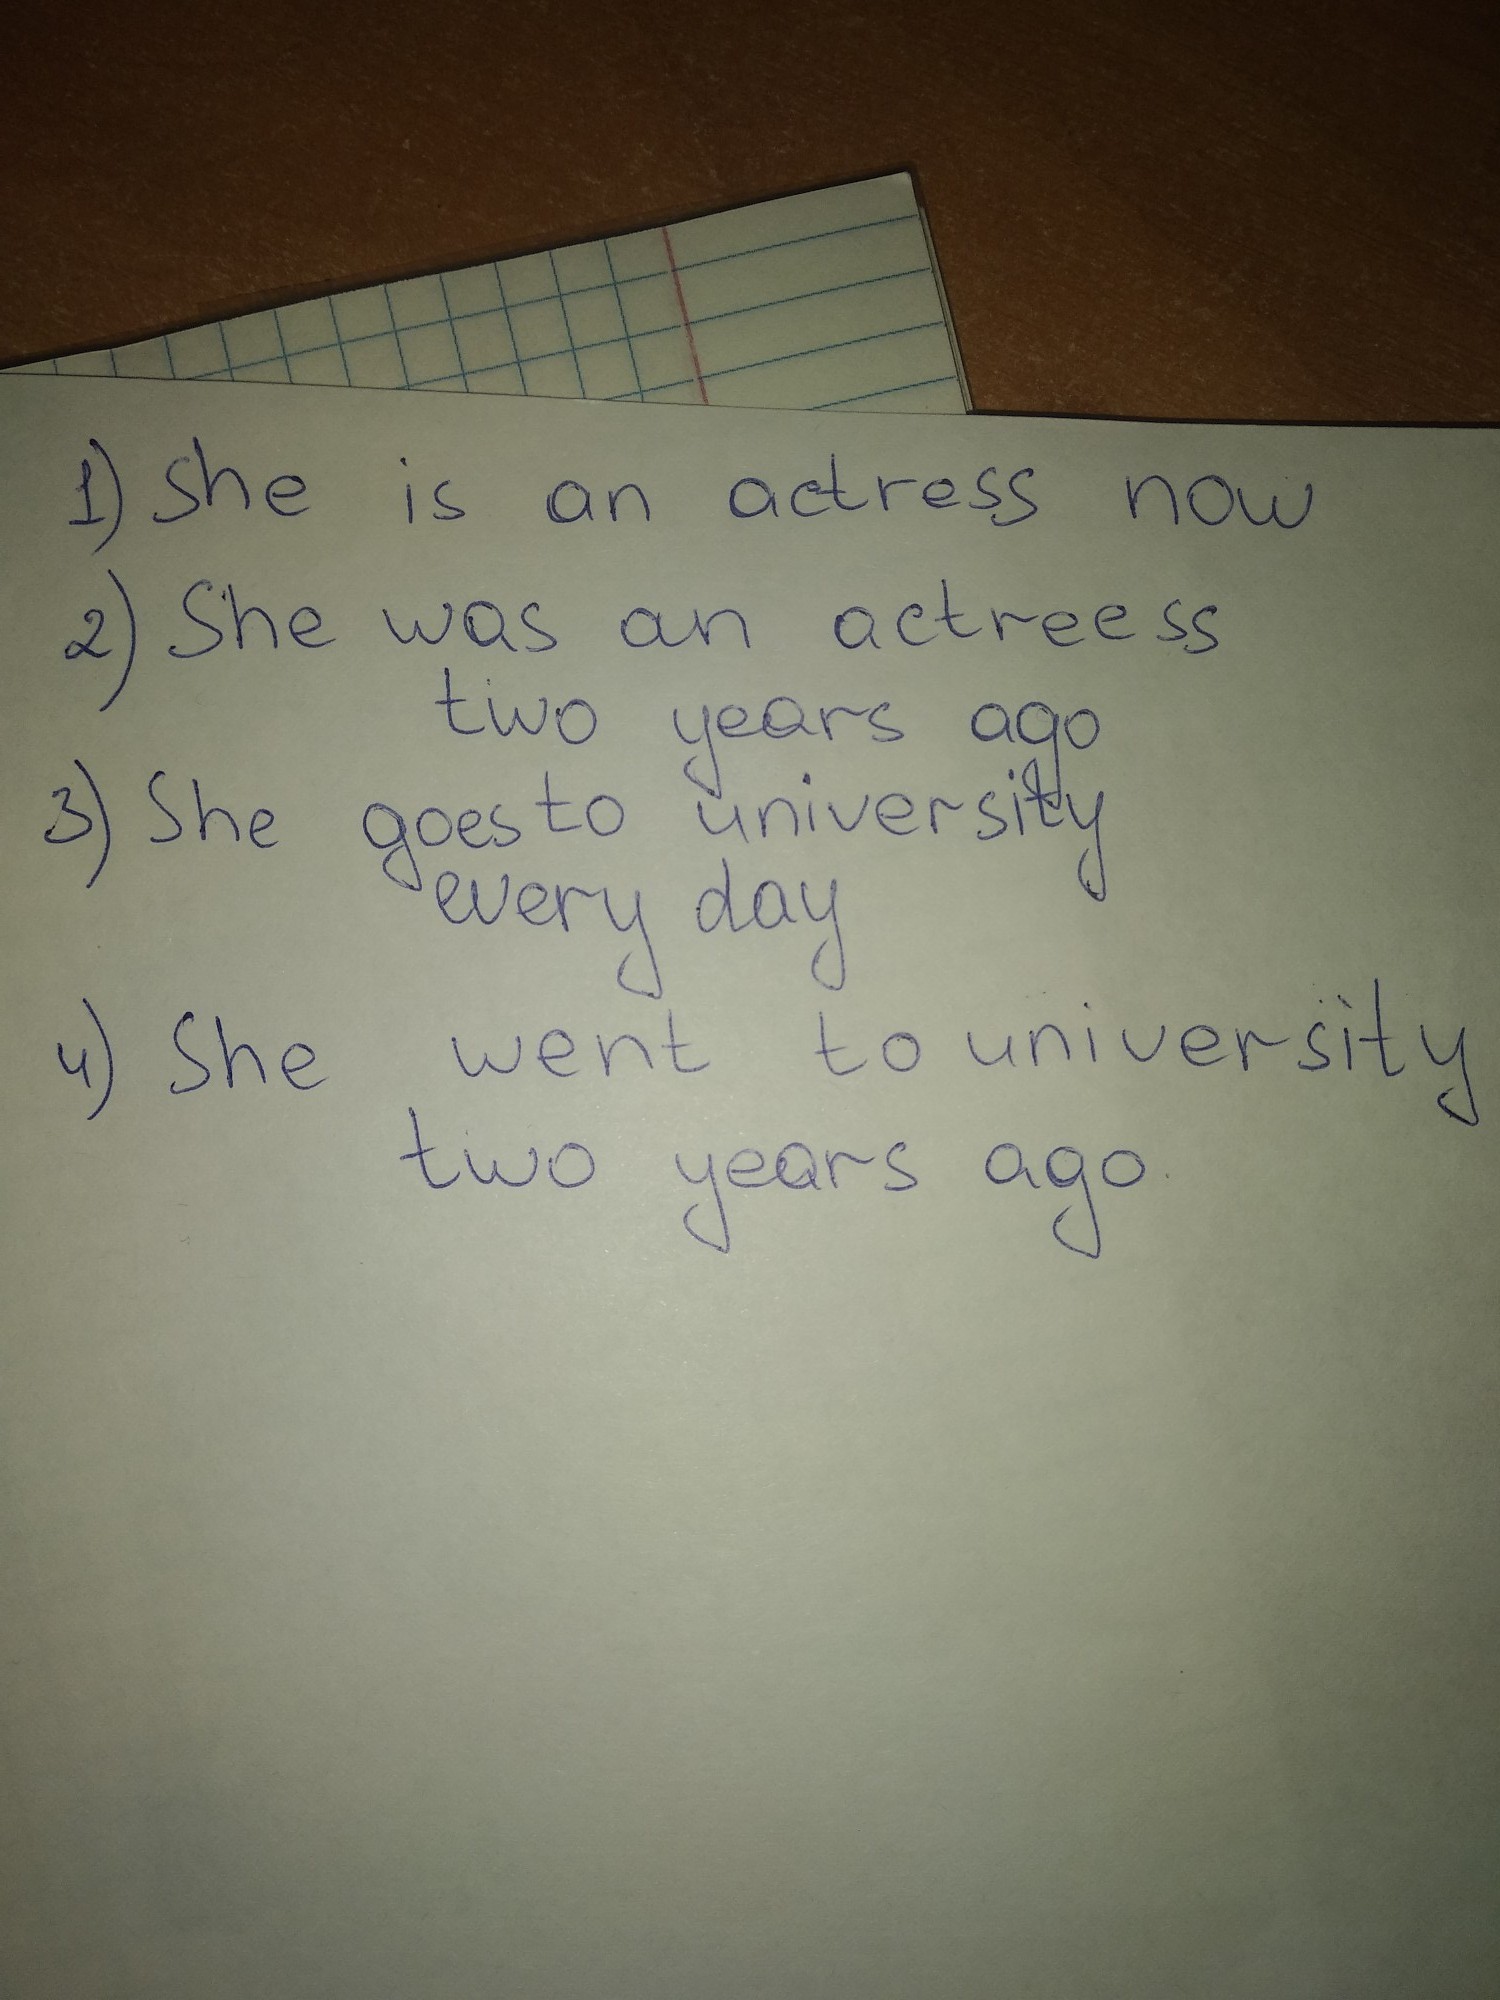 1) She is an actress now
2) She was an actreess
two years ago
3) She goes to university
every day
4) She went to university
two years ago.